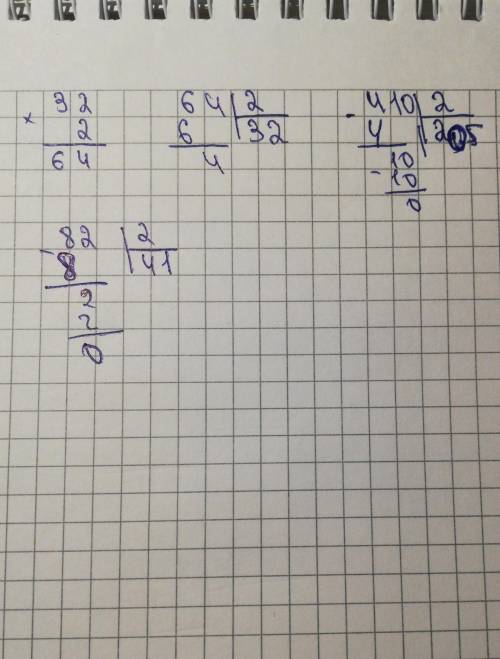 × 32
2
64
64 | 2
6 | 32
4
- 410 | 2
4 | 205
- 10
10
0
- 82 | 2
8 | 41
2
2
0